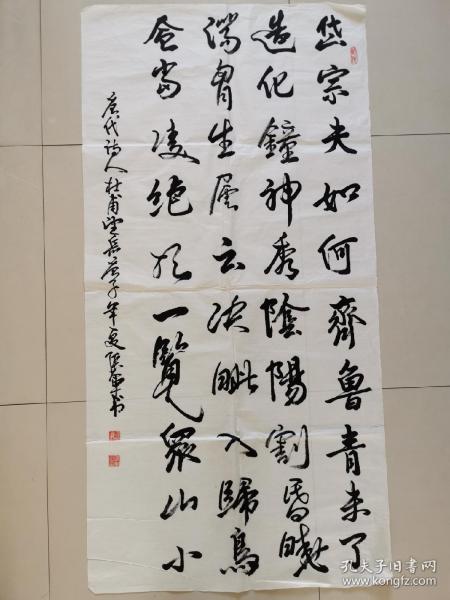 岱宗夫如何齊魯青未了
造化鐘神秀陰陽割昏曉
蕩胷生層云决眦入歸鳥
會當凌绝顶一覽眾山小
唐代诗人杜甫望岳庚子年夏书
孔夫子旧书网
www.kongfz.com